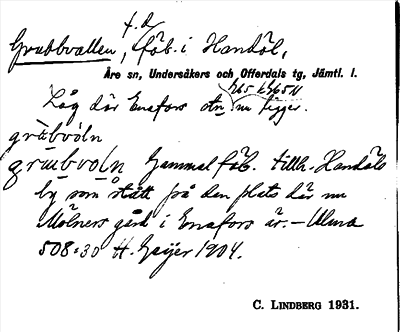 Grubbvallen, f.d. fäb. i Handöl,
Åre sn, Undersåkers och Offerdals tg, Jämtl. l.
Låg där Enafors stn nu ligger.
gammal fäb. tillh. Handöls
by som stått på den plats där nu
Mölners gård i Enafors är. – Ulma
508:30 H. Geijer 1904.
C. LINDBERG 1931.